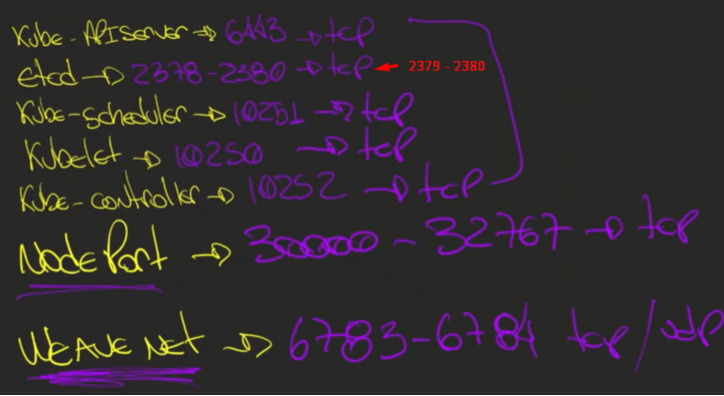 Kube-APIserver → 6443 → tcp
etcd → 2378-2380 → tcp ← 2379 - 2380
Kube-scheduler → 10251 → tcp
Kubelet → 10250 → tcp
Kube-controller → 10252 → tcp
NodePort → 30000 - 32767 → tcp
WEAVE NET → 6783-6784 tcp/udp